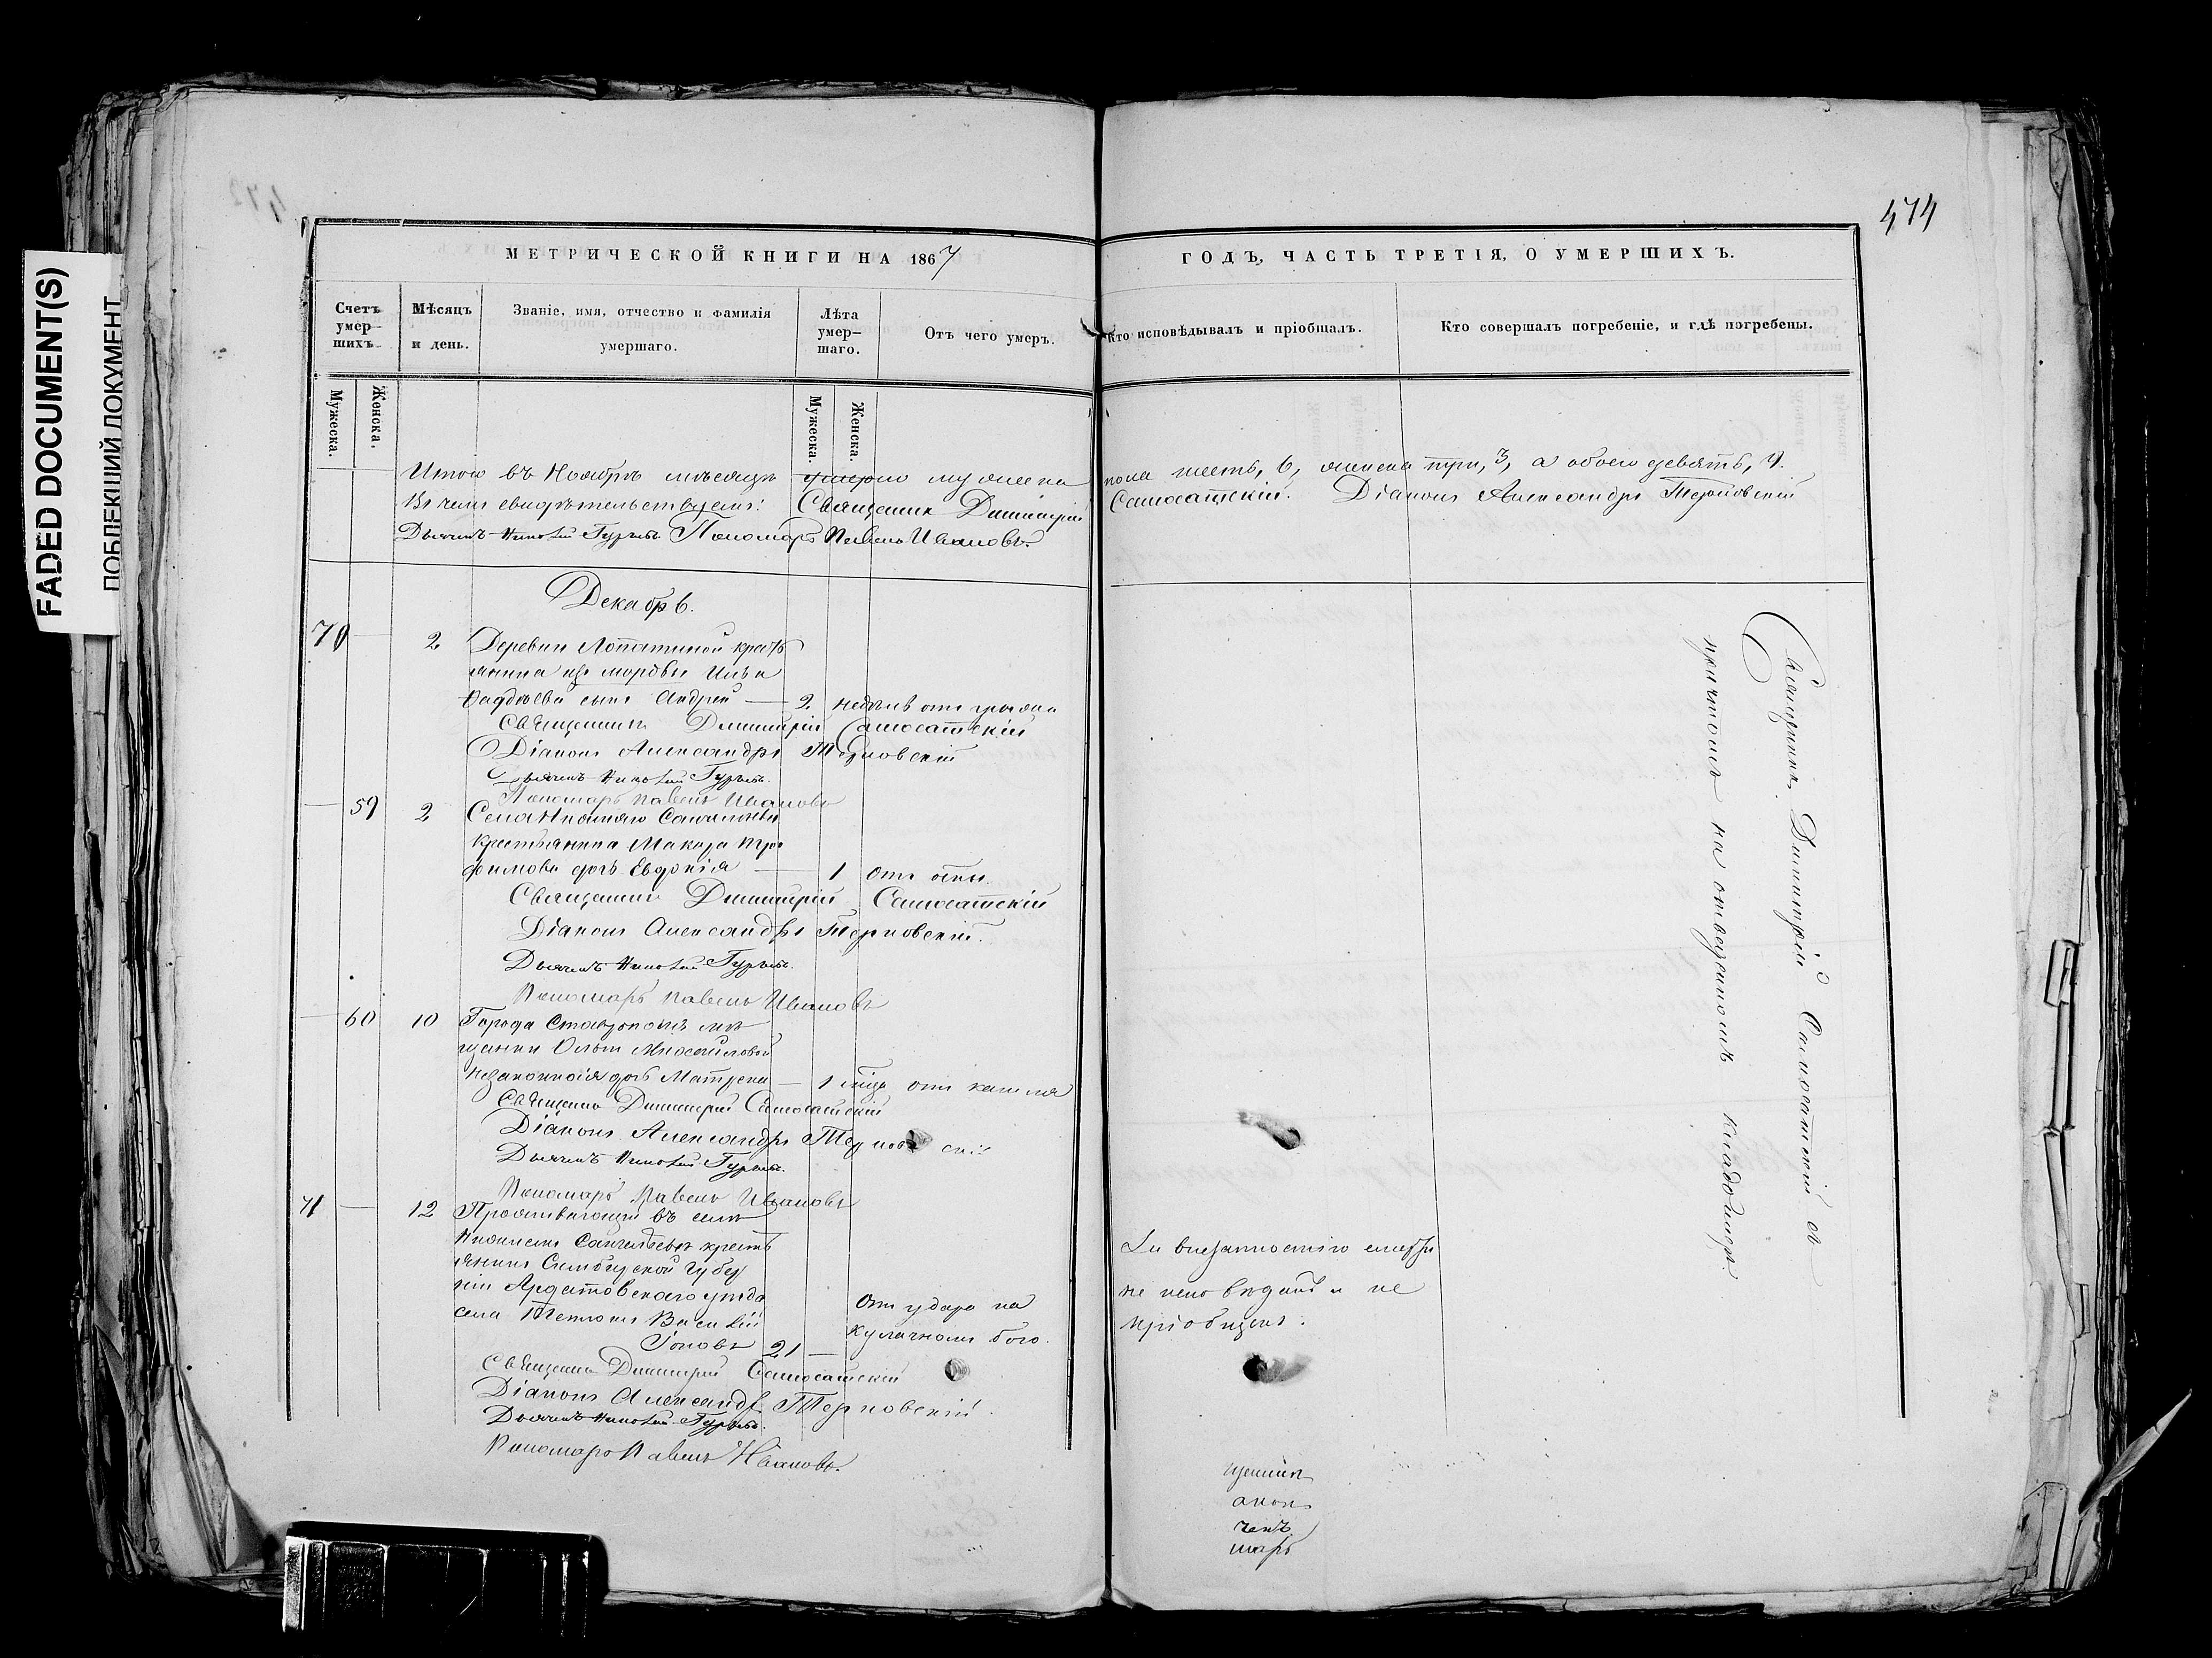 FADED DOCUMENT(S)
ПОБЛЕКШИЙ ДОКУМЕНТ
474
МЕТРИЧЕСКОЙ КНИГИ НА 1867
ГОДЪ, ЧАСТЬ ТРЕТІЯ, О УМЕРШИХЪ.
Счетъ умер-шихъ.
Мѣсяцъ и день.
Званіе, имя, отчество и фамилія умершаго.
Лѣта умер-шаго.
Отъ чего умеръ.
Кто исповѣдывалъ и пріобщалъ.
Кто совершалъ погребеніе, и гдѣ погребены.
Мужеска.
Женска.
Мужеска.
Женска.
Итого въ Ноябрѣ мѣсяцѣ умерло мужеска пола шесть, 6, женска три, 3, а обоего девять, 9.
Въ чемъ свидѣтельствуемъ: Священникъ Димитрій Самосатскій. Діаконъ Александръ Терновскій
Дьячекъ Николай Гурьевъ. Пономарь Павелъ Ивановъ.
Декабрь.
70 2 Деревни Лопатиной кресть
янина изъ мордвы Ильи
сынъ Андрей — 2 недѣль отъ
Священникъ Димитрій Самосатскій
Діаконъ Александръ Терновскій
Дьячекъ Николай Гурьевъ.
Пономарь Павелъ Ивановъ
59 2 Села
крестьянина Макара Тро
фимова дочь Евдокія — 1 отъ оспы.
Священникъ Димитрій Самосатскій
Діаконъ Александръ Терновскій.
Дьячекъ Николай Гурьевъ.
Пономарь Павелъ Ивановъ
60 10 Города Ставрополя мѣ
щанки Ольги
незаконная дочь Матрена — 1 отъ кашля
Священникъ Димитрій Самосатскій
Діаконъ Александръ Терновскій
Дьячекъ Николай Гурьевъ.
Пономарь Павелъ Ивановъ
71 — 12 Проживающій въ селѣ
кресть
янинъ Симбирской губер
ніи Ардатовскаго уѣзда
села Василій
21 —
Отъ удара на
кулачномъ бою.
За внезапностію смерти
не исповѣданъ и не
пріобщенъ.
Священникъ Димитрій Самосатскій
Діаконъ Александръ Терновскій.
Дьячекъ Николай Гурьевъ.
Пономарь Павелъ Ивановъ.
Священникъ Димитрій Самосатскій съ
причтомъ на отведенномъ кладбищѣ.
щенникъ
аконъ
чекъ
марь